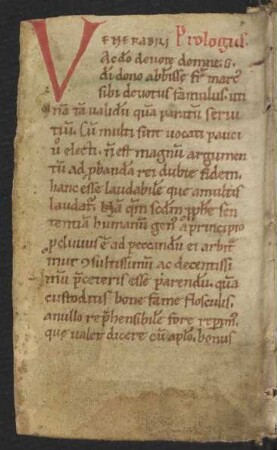 VENERABILI Prologus.
Ac do devote domne. G.
di dono abbisse. fr marc
sibi devotus famulus. uti
nã tã validũ quã paratũ servi
tiũ. Cũ multi sint vocati pauci
ṽ electi. ñ est magnũ argumen
tũ ad pbanda rei dubie fidem.
hanc esse laudabilẽ que a multis
laudat̃. Nã qm̃ scdm pphe sen
tentiã humanũ gen̾ a principio
pclivius ẽ ad peccandũ et arbit
mur ꝯsultissimũ ac decentissi
mũ p ceteris esse parendũ. quã
custoditis bone fame flosculis.
a nullo rephensibilẽ fore repim̾.
que valet dicere cũ aplo. bonus